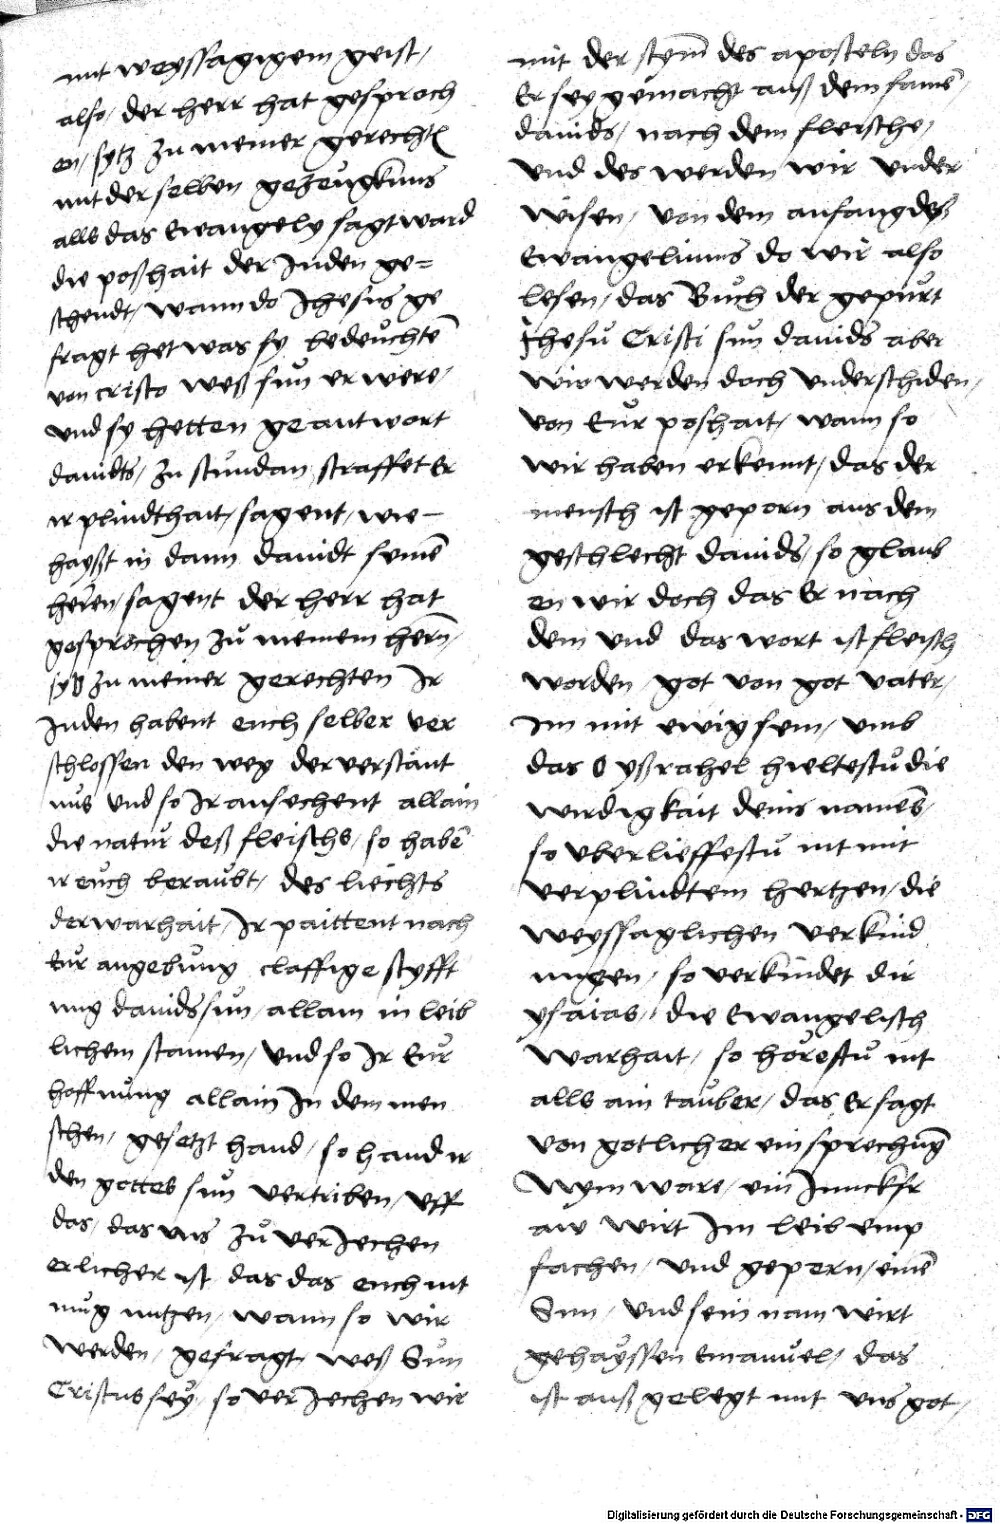 mit weyssagigem geist /
also / der herr hat gesproch
en / sytz zu meiner gerechtē
mit der selben gezeugknus
alls das Ewangely sagt ward
die poßhait der Juden ge=
schendt / wann do Jhesus ge
fragt het was sy bedeuchtē
von cristo weß sun er were /
vnd sy hetten geantwort
dauidts / zu stundan straffet Er
ir plindthait / sagent / wie –
hayßt in dann dauidt seinē
herren / sagent der herr hat
gesprochen zu meinem hern /
sytz zu meiner gerechten Ir
Juden habent euch selber ver
schlossen den weg der verstant
nus vnd so Ir ansechent allain
die natur deß fleischs / so habē
ir euch beraubt / des liechts
der warhait / Ir paittent nach
Eur angebung claffige styfft
ung dauids sun / allain in leib
lichem stamen / vnd so Ir Eur
hoffnung allain In dem men
schen / gesetzt hand / so hand ir
den gottes sun vertriben / vff
das / das vns zu verJechen
erlicher ist das das euch nit
mug nutzen / wann so wir
werden / gefragt weß Sun
Cristus sey / so verJechen wir
mit der stym̄ des aposteln das
Er sey gemacht auß dem samē
dauids / nach dem fleische /
vnd des werden wir vnder
wisen / von dem anfang des
Ewangeliums do wir also
lesen / das Buch der gepurt
Jhesu Cristi sun dauids aber
wir werden doch vnderschiden /
von Eur poshait / wann so
wir haben erkennt / das der
mensch ist geporn aus dem
geschlecht dauids / so glaub
en wir doch das Er nach
dem vnd das wort ist fleisch
worden / got von got vater /
Im mit ewig sein / vmb
das O yßrahel hieltestu die
wirdigkait deins namēs /
so vberlieffestu nit mit
verplindtem hertzen / die
weyssaglichen verkünd
ungen / so verkündet dir
ysaias / die Ewangelisch
warhait / so hörestu nit
alls ain tauber / das Er sagt
von gotlicher einsprechung
Nym ware / ein Junckfr
aw wirt Im leib emp
fachen / vnd gepern / einē
Sun / vnd sein nam wirt
gehayssen Emanuel / das
ist auß gelegt mit vns got /
Digitalisierung gefördert durch die Deutsche Forschungsgemeinschaft - DFG